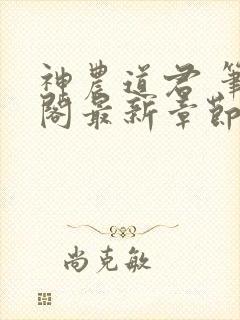 神農道君 筆
閣最新章節
尚克敏